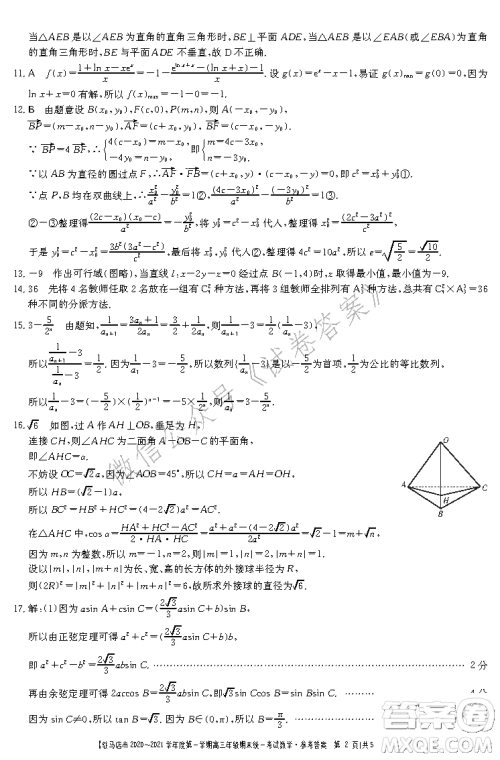 当△AEB是以∠AEB为直角的直角三角形时,BE⊥平面ADE,当△AEB是以∠EAB(或∠EBA)为直角的直角三角形时,BE与平面ADE不垂直,故D不正确.
11. A f(x)=\frac{1+\ln x-xe^x}{x}=-1-\frac{e^{\ln x+x}-(\ln x+x)-1}{x}. 设g(x)=e^x-x-1,易证g(x)_{min}=g(0)=0,因为
ln x+x=0有解,所以f(x)_{max}=-1-0=-1.
12. B 由题意设B(x_0,y_0),F(c,0),P(m,n),则A(-x_0,-y_0),
\vec{BP}=(m-x_0,n-y_0),\vec{AF}=(c+x_0,y_0),\vec{BF}=(c-x_0,-y_0).
∵\vec{BP}=4\vec{BF},∴{4(c-x_0)=m-x_0, -4y_0=n-y_0,即{m=4c-3x_0, n=-3y_0.
∵以AB为直径的圆过点F,∴\vec{AF}·\vec{FB}=(c+x_0,y_0)·(c-x_0,-y_0)=0,即c²=x_0²+y_0²①.
∵点P,B均在双曲线上,∴\frac{x_0²}{a²}-\frac{y_0²}{b²}=1②,\frac{(4c-3x_0)²}{a²}-\frac{(-3y_0)²}{b²}=1③.
②-③整理得\frac{(2c-x_0)(x_0-c)}{a²}=-\frac{y_0²}{b²},将y_0²=c²-x_0²代入,整理得x_0²=\frac{(2c²-3a²)²}{c²},
于是y_0²=c²-x_0²=\frac{3b²(3a²-c²)}{c²},最后将x_0²,y_0²代入双曲线方程,整理得4c²=10a²,所以e=\sqrt{\frac{5}{2}}=\frac{\sqrt{10}}{2}.
13. -9 作出可行域(图略),当直线l:x-2y-z=0经过点B(-1,4)时,z取得最小值,最小值为-9.
14. 36 先将4名教师任取2名放在一组有C_4^2种方法,再将3组教师全排列有A_3^3种方法,总共有C_4^2×A_3^3=36
种不同的分派方法.
15. 3-\frac{5}{2^n} 由题知,\frac{1}{a_{n+1}}=\frac{3a_n+1}{2a_n}=\frac{3}{2}+\frac{1}{2a_n},
所以\frac{\frac{1}{a_{n+1}}-3}{\frac{1}{a_n}-3}=\frac{1}{2}. 因为\frac{1}{a_1}-3=-\frac{5}{2},所以数列{\frac{1}{a_n}-3}是以-\frac{5}{2}为首项,\frac{1}{2}为公比的等比数列,
所以\frac{1}{a_n}-3=(-\frac{5}{2})×(\frac{1}{2})^{n-1}=-\frac{5}{2^n},则\frac{1}{a_n}=3-\frac{5}{2^n}.
16. \sqrt{6} 如图,过A作AH⊥OB,垂足为H,
连接CH,则∠AHC为二面角A-OB-C的平面角,
即∠AHC=α.
不妨设OC=\sqrt{2}a,因为∠AOB=45°,所以CH=a=AH=OH.
所以HB=(\sqrt{2}-1)a,
所以BC²=HB²+HC²=(4-2\sqrt{2})a²=AC².
在△AHC中,cos α=\frac{HA²+HC²-AC²}{2·HA·HC}=\frac{a²+a²-(4-2\sqrt{2})a²}{2a²}=m+\sqrt{n},
因为m,n为整数,所以m=-1,n=2,则|m|=1,|n|=2,|m+n|=1.
所以以|m|,|n|,|m+n|为长、宽、高的长方体的外接球半径为R,
则(2R)²=|m|²+|n|²+|m+n|²=6,故所求外接球的直径为\sqrt{6}.
O
A
C
H
B
17. 解:(1)因为asin A+csin C=(\frac{2\sqrt{3}}{3}asin C+b)sin B,
所以由正弦定理可得a²+c²=(\frac{2\sqrt{3}}{3}asin C+b)b,
即a²+c²-b²=\frac{2\sqrt{3}}{3}absin C. …… 2分
再由余弦定理可得2accos B=\frac{2\sqrt{3}}{3}absin C,即\sqrt{3}sin Ccos B=sin Bsin C.
因为sin C≠0,所以tan B=\sqrt{3}.
【驻马店市2020~2021学年度第一学期高三年级期末统一考试数学·参考答案 第2页(共5
微信公众号《试卷答案》